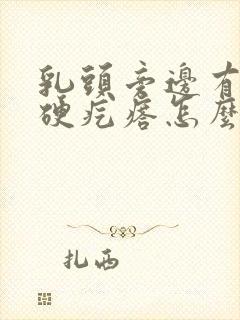 乳頭旁邊有
硬疙瘩怎麼
扎西